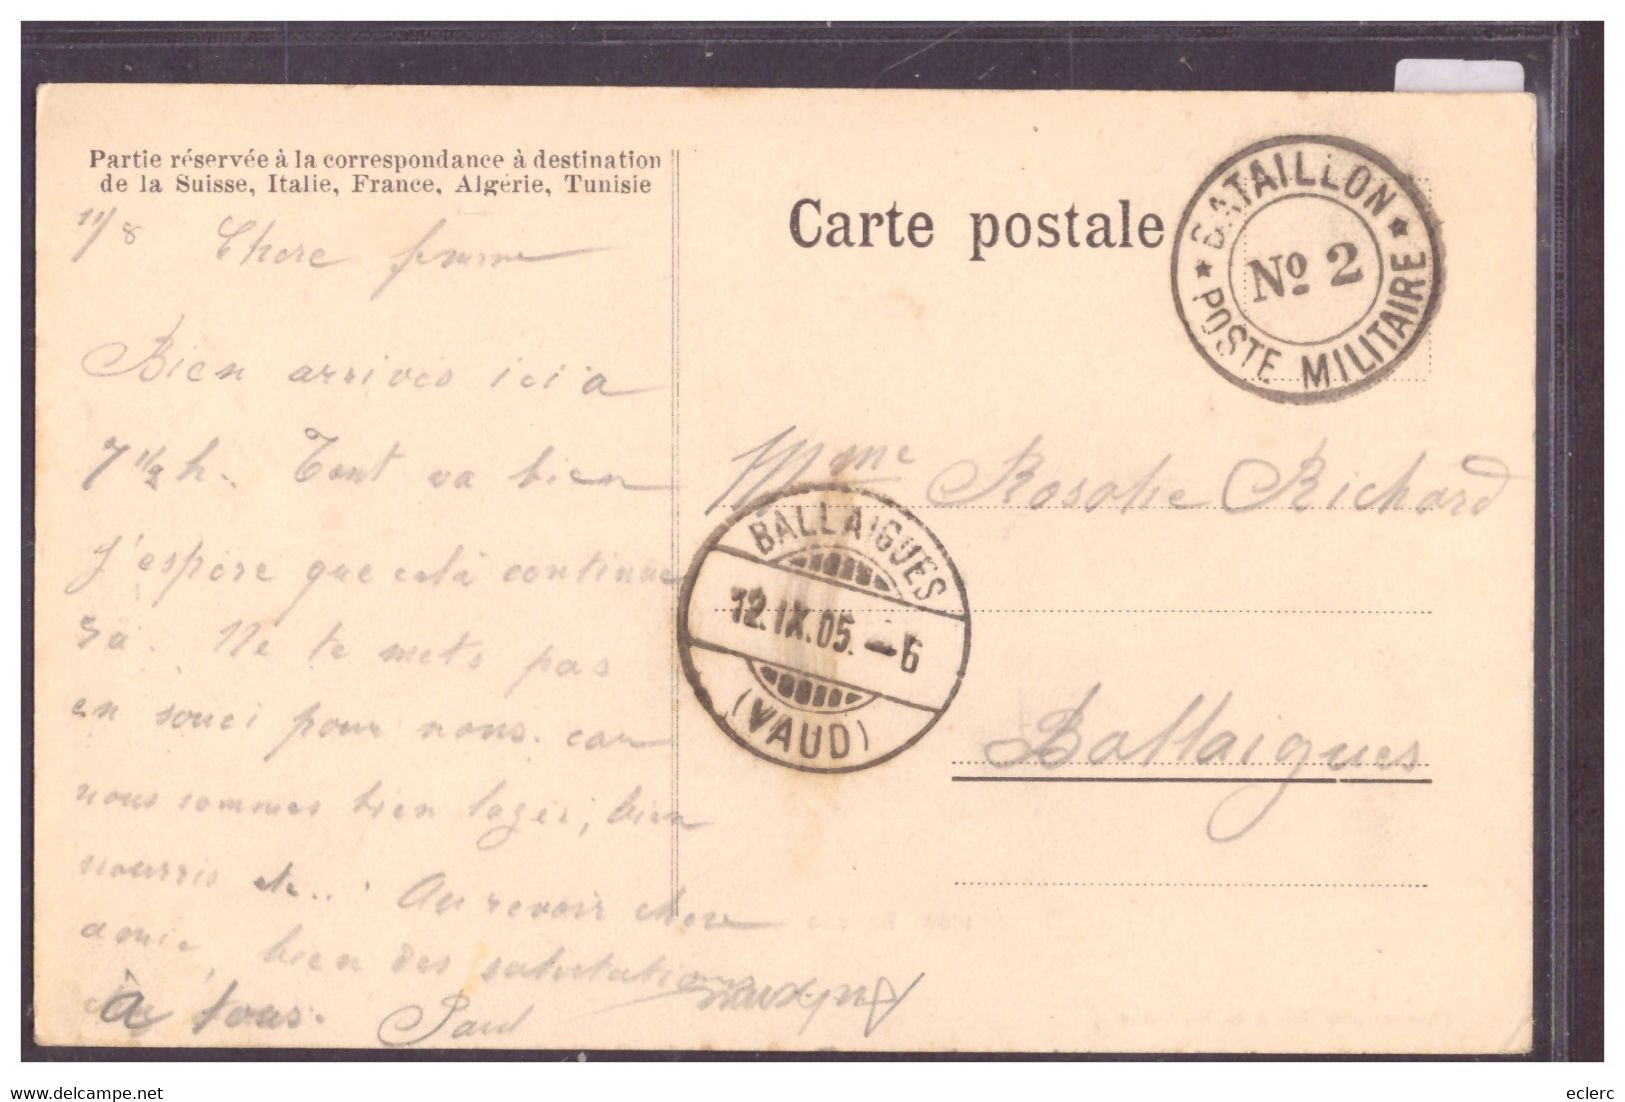 Partie réservée à la correspondance à destination
de la Suisse, Italie, France, Algérie, Tunisie
11/8 Chere femme
Bien arrivés ici à
7 1/2 h. Tout va bien
J'espère que cela continue
ra. Ne te mets pas
en souci pour nous. car
nous sommes bien loger, bien
nourris etc.. Au revoir chere
amie, bien des salutations
à tous. Paul
Carte postale
BATAILLON
No 2
POSTE MILITAIRE
Mme Richard
BALLAIGUES
12.IX.05.-6
(VAUD)
Ballaigues
www.delcampe.net
eclerc